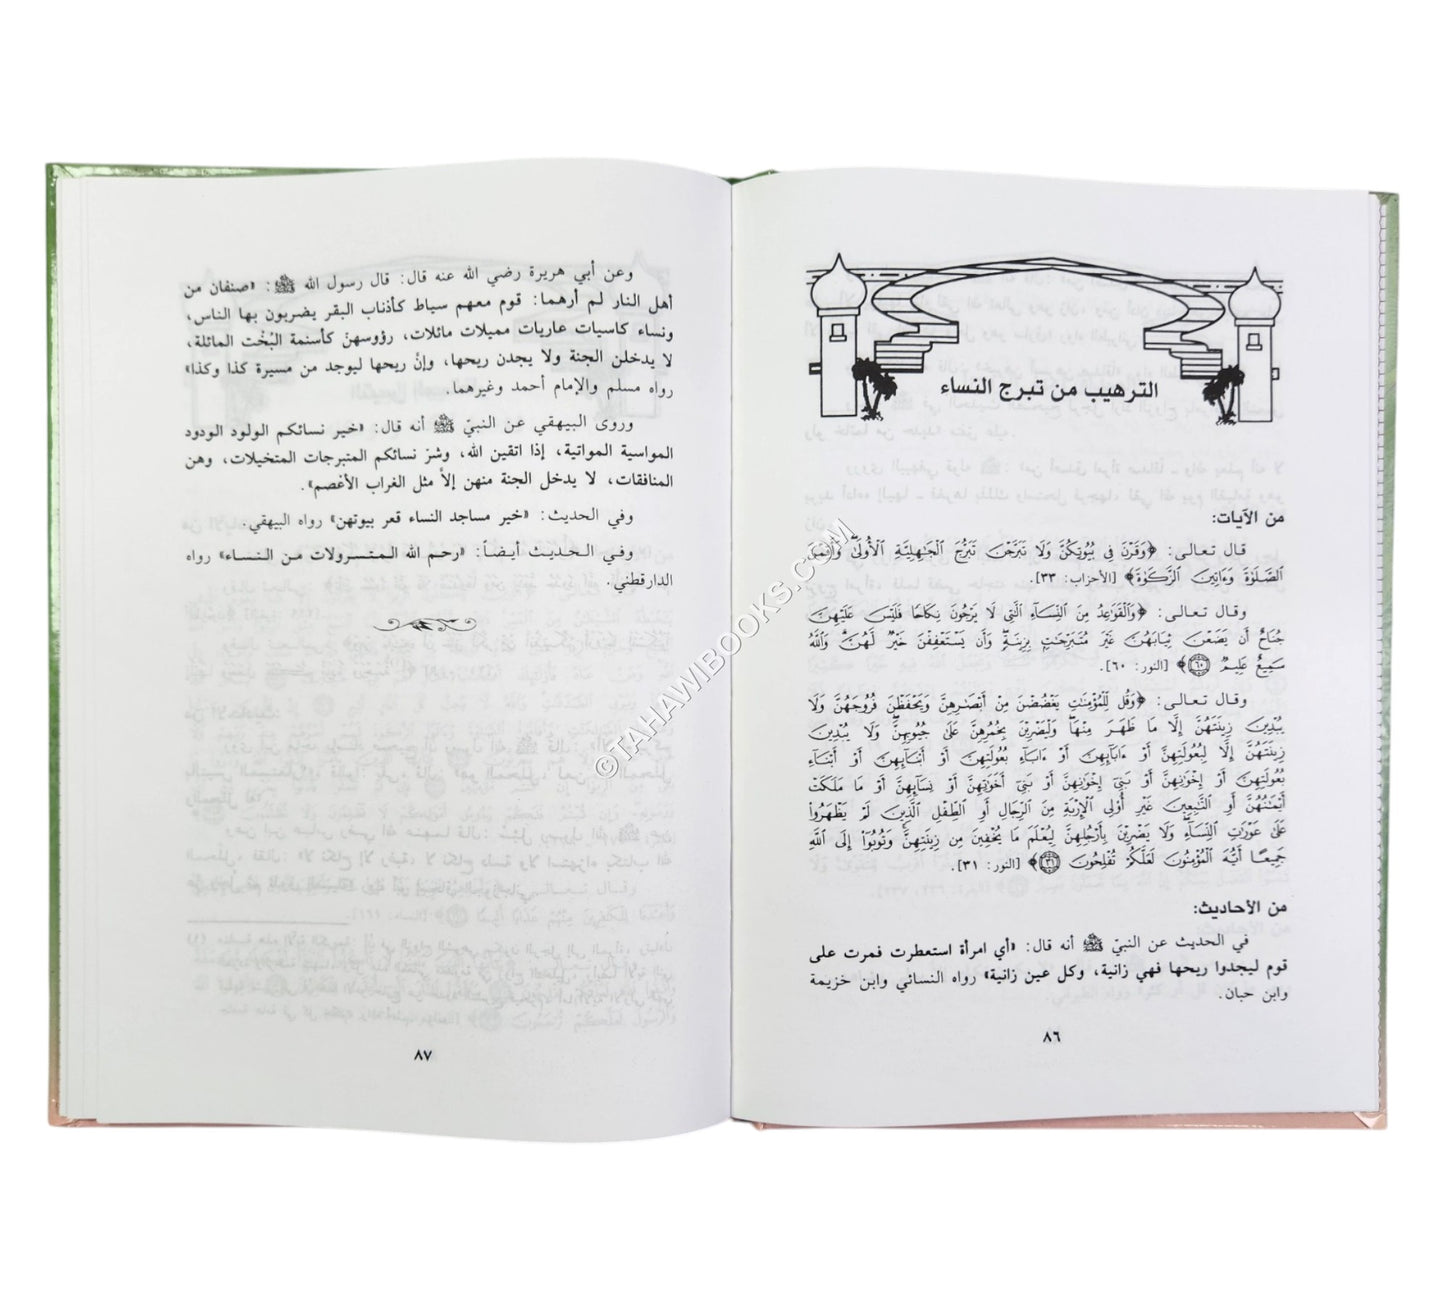 الترهيب من تبرج النساء
من الآيات:
قال تعالى: ﴿وَقَرْنَ فِي بُيُوتِكُنَّ وَلَا تَبَرَّجْنَ تَبَرُّجَ الْجَاهِلِيَّةِ الْأُولَى وَأَقِمْنَ
الصَّلَاةَ وَءَاتِينَ الزَّكَاةَ﴾ [الأحزاب: ٣٣].
وقال تعالى: ﴿وَالْقَوَاعِدُ مِنَ النِّسَاءِ الَّتِي لَا يَرْجُونَ نِكَاحًا فَلَيْسَ عَلَيْهِنَّ
جُنَاحٌ أَن يَضَعْنَ ثِيَابَهُنَّ غَيْرَ مُتَبَرِّجَاتٍ بِزِينَةٍ وَأَن يَسْتَعْفِفْنَ خَيْرٌ لَّهُنَّ وَاللَّهُ
سَمِيعٌ عَلِيمٌ ۝٦٠﴾ [النور: ٦٠].
وقال تعالى: ﴿وَقُل لِّلْمُؤْمِنَاتِ يَغْضُضْنَ مِنْ أَبْصَارِهِنَّ وَيَحْفَظْنَ فُرُوجَهُنَّ وَلَا
يُبْدِينَ زِينَتَهُنَّ إِلَّا مَا ظَهَرَ مِنْهَا وَلْيَضْرِبْنَ بِخُمُرِهِنَّ عَلَى جُيُوبِهِنَّ وَلَا يُبْدِينَ
زِينَتَهُنَّ إِلَّا لِبُعُولَتِهِنَّ أَوْ ءَابَائِهِنَّ أَوْ ءَابَاءِ بُعُولَتِهِنَّ أَوْ أَبْنَائِهِنَّ أَوْ أَبْنَاءِ
بُعُولَتِهِنَّ أَوْ إِخْوَانِهِنَّ أَوْ بَنِي إِخْوَانِهِنَّ أَوْ بَنِي أَخَوَاتِهِنَّ أَوْ نِسَائِهِنَّ أَوْ مَا مَلَكَتْ
أَيْمَانُهُنَّ أَوِ التَّابِعِينَ غَيْرِ أُولِي الْإِرْبَةِ مِنَ الرِّجَالِ أَوِ الطِّفْلِ الَّذِينَ لَمْ يَظْهَرُوا
عَلَى عَوْرَاتِ النِّسَاءِ وَلَا يَضْرِبْنَ بِأَرْجُلِهِنَّ لِيُعْلَمَ مَا يُخْفِينَ مِن زِينَتِهِنَّ وَتُوبُوا إِلَى اللَّهِ
جَمِيعًا أَيُّهَ الْمُؤْمِنُونَ لَعَلَّكُمْ تُفْلِحُونَ ۝٣١﴾ [النور: ٣١].
من الأحاديث:
في الحديث عن النبيّ ﷺ أنه قال: «أي امرأة استعطرت فمرت على
قوم ليجدوا ريحها فهي زانية، وكل عين زانية» رواه النسائي وابن خزيمة
وابن حبان.
٨٦
وعن أبي هريرة رضي الله عنه قال: قال رسول الله ﷺ: «صنفان من
أهل النار لم أرهما: قوم معهم سياط كأذناب البقر يضربون بها الناس،
ونساء كاسيات عاريات مميلات مائلات، رؤوسهنّ كأسنمة البُخْت المائلة،
لا يدخلن الجنة ولا يجدن ريحها، وإنّ ريحها ليوجد من مسيرة كذا وكذا»
رواه مسلم والإمام أحمد وغيرهما.
وروى البيهقي عن النبيّ ﷺ أنه قال: «خير نسائكم الولود الودود
المواسية المواتية، إذا اتقين الله، وشرّ نسائكم المتبرجات المتخيلات، وهن
المنافقات، لا يدخل الجنة منهن إلاّ مثل الغراب الأعصم».
وفي الحديث: «خير مساجد النساء قعر بيوتهن» رواه البيهقي.
وفي الحديث أيضاً: «رحم الله المتسرولات من النساء» رواه
الدارقطني.
٨٧
©TAHAWIBOOKS.COM